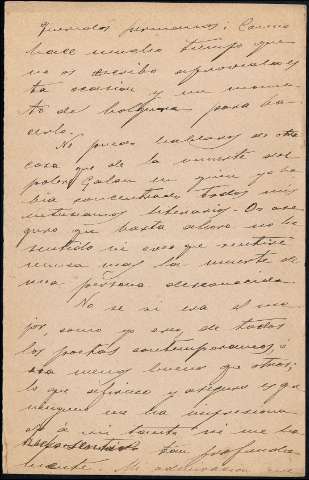 Queridos hermanos: Como
hace mucho tiempo que
no os escribo aprovecho es
ta ocasión y un momen
to de holgura para ha
cerlo.
No puedo hablaros de otra
cosa que de la muerte del
pobre Galan en quien yo ha
bía concentrado todos mis
entusiasmos literarios. Os ase
guro que hasta ahora no he
sentido ni creo que sentiré
nunca mas la muerte de
una persona desconocida.
No se si era el me
jor, como yo creo, de todos
los poetas contemporaneos, ó
era menos bueno que otros;
lo que afirmo y aseguro es que
ninguno me ha impresiona
do á mi tanto ni me ha
tan profunda
mente. Mi admiracion que